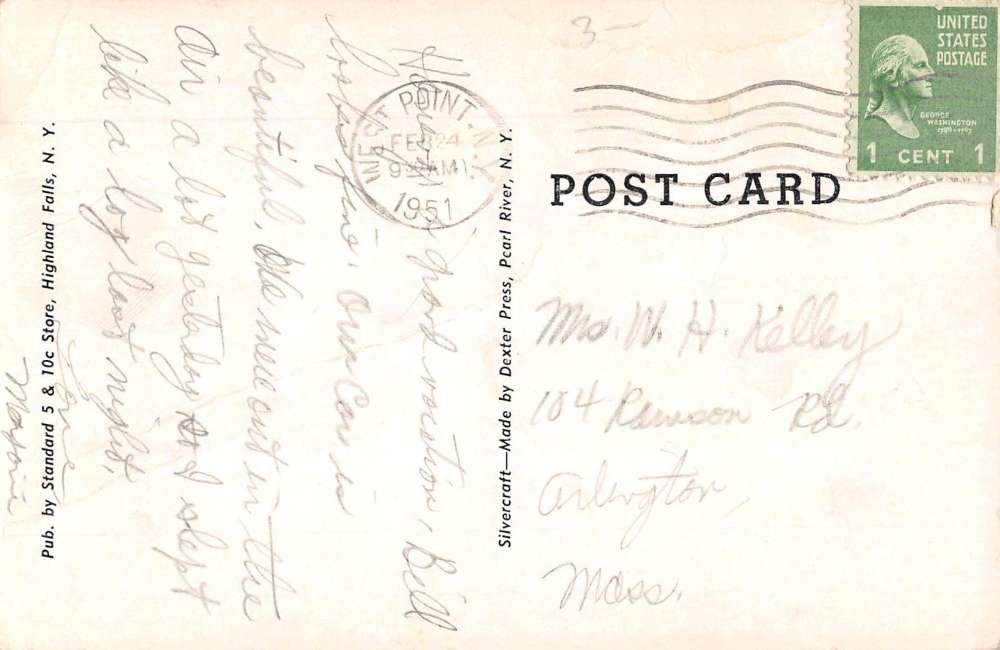 3-
UNITED
STATES
POSTAGE
GEORGE
WASHINGTON
1789-1797
1 CENT 1
WEST POINT, N.Y.
FEB 24
9 AM
1951
POST CARD
Mrs. W. H. Kelley
104 Rawson Rd.
Arlington,
Mass.
Having good vacation, Bill
looks fine. Our Con is
beautiful. We were out in the
air a lot yesterday and slept
like a log last night.
Love
Marie
Pub. by Standard 5 & 10c Store, Highland Falls, N. Y.
Silvercraft—Made by Dexter Press, Pearl River, N. Y.